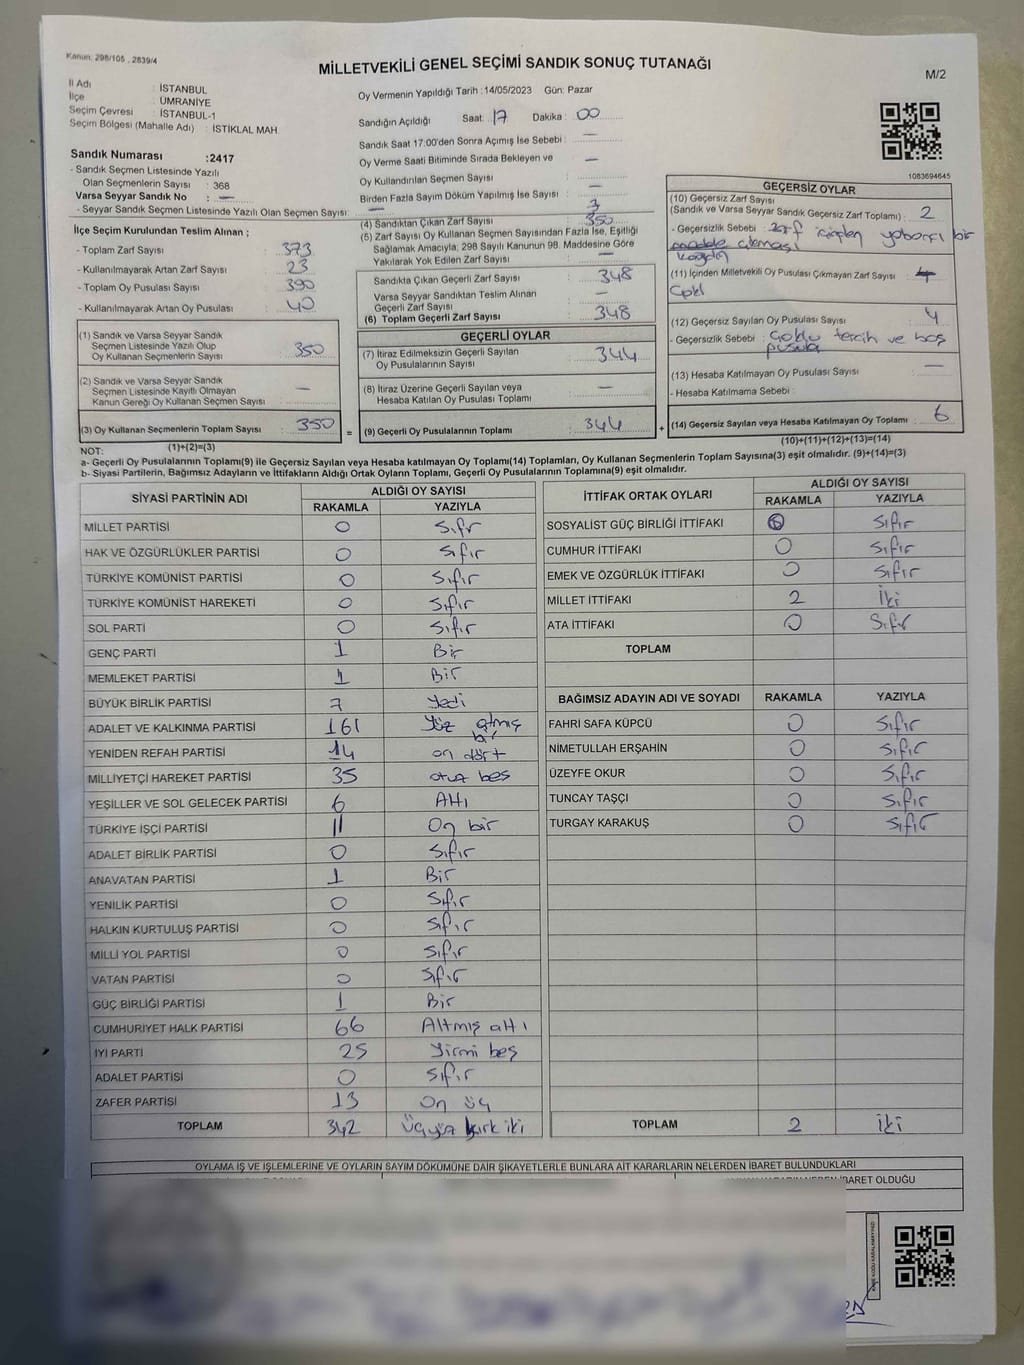 Kanun: 298/105 , 2839/4
MİLLETVEKİLİ GENEL SEÇİMİ SANDIK SONUÇ TUTANAĞI
M/2
İl Adı : İSTANBUL
İlçe : ÜMRANİYE
Seçim Çevresi : İSTANBUL-1
Seçim Bölgesi (Mahalle Adı) : İSTİKLAL MAH.
Sandık Numarası :2417
- Sandık Seçmen Listesinde Yazılı
Olan Seçmenlerin Sayısı : 368
Varsa Seyyar Sandık No : —
- Seyyar Sandık Seçmen Listesinde Yazılı Olan Seçmen Sayısı: —
İlçe Seçim Kurulundan Teslim Alınan ;
- Toplam Zarf Sayısı : 373
- Kullanılmayarak Artan Zarf Sayısı : 23
- Toplam Oy Pusulası Sayısı : 390
- Kullanılmayarak Artan Oy Pusulası : 40
(1) Sandık ve Varsa Seyyar Sandık
Seçmen Listesinde Yazılı Olup
Oy Kullanan Seçmenlerin Sayısı : 350
(2) Sandık ve Varsa Seyyar Sandık
Seçmen Listesinde Kayıtlı Olmayan
Kanun Gereği Oy Kullanan Seçmen Sayısı : —
(3) Oy Kullanan Seçmenlerin Toplam Sayısı : 350
(1)+(2)=(3)
Oy Vermenin Yapıldığı Tarih :14/05/2023 Gün: Pazar
Sandığın Açıldığı Saat: 17 Dakika : 00
Sandık Saat 17:00'den Sonra Açımış İse Sebebi : —
Oy Verme Saati Bitiminde Sırada Bekleyen ve
Oy Kullandırılan Seçmen Sayısı : —
Birden Fazla Sayım Döküm Yapılmış İse Sayısı : —
3
(4) Sandıktan Çıkan Zarf Sayısı : 350
(5) Zarf Sayısı Oy Kullanan Seçmen Sayısından Fazla İse, Eşitliği
Sağlamak Amacıyla; 298 Sayılı Kanunun 98. Maddesine Göre
Yakılarak Yok Edilen Zarf Sayısı : —
Sandıkta Çıkan Geçerli Zarf Sayısı : 348
Varsa Seyyar Sandıktan Teslim Alınan
Geçerli Zarf Sayısı : —
(6) Toplam Geçerli Zarf Sayısı : 348
GEÇERLİ OYLAR
(7) İtiraz Edilmeksizin Geçerli Sayılan
Oy Pusulalarının Sayısı : 344
(8) İtiraz Üzerine Geçerli Sayılan veya
Hesaba Katılan Oy Pusulası Toplamı : —
= (9) Geçerli Oy Pusulalarının Toplamı : 344 +
1083694645
GEÇERSİZ OYLAR
(10) Geçersiz Zarf Sayısı
(Sandık ve Varsa Seyyar Sandık Geçersiz Zarf Toplamı) : 2
- Geçersizlik Sebebi : zarf içinden yabancı bir
madde çıkması
(11) İçinden Milletvekili Oy Pusulası Çıkmayan Zarf Sayısı :
(12) Geçersiz Sayılan Oy Pusulası Sayısı : 4
- Geçersizlik Sebebi : Çoklu tercih ve boş
pusula
(13) Hesaba Katılmayan Oy Pusulası Sayısı : —
- Hesaba Katılmama Sebebi :
(14) Geçersiz Sayılan veya Hesaba Katılmayan Oy Toplamı : 6
(10)+(11)+(12)+(13)=(14)
NOT:
a- Geçerli Oy Pusulalarının Toplamı(9) ile Geçersiz Sayılan veya Hesaba katılmayan Oy Toplamı(14) Toplamları, Oy Kullanan Seçmenlerin Toplam Sayısına(3) eşit olmalıdır. (9)+(14)=(3)
b- Siyasi Partilerin, Bağımsız Adayların ve İttifakların Aldığı Ortak Oyların Toplamı, Geçerli Oy Pusulalarının Toplamına(9) eşit olmalıdır.
SİYASİ PARTİNİN ADI ALDIĞI OY SAYISI
RAKAMLA YAZIYLA
MİLLET PARTİSİ 0 Sıfır
HAK VE ÖZGÜRLÜKLER PARTİSİ 0 Sıfır
TÜRKİYE KOMÜNİST PARTİSİ 0 Sıfır
TÜRKİYE KOMÜNİST HAREKETİ 0 Sıfır
SOL PARTİ 0 Sıfır
GENÇ PARTİ 1 Bir
MEMLEKET PARTİSİ 1 Bir
BÜYÜK BİRLİK PARTİSİ 7 Yedi
ADALET VE KALKINMA PARTİSİ 161 Yüz atmış bir
YENİDEN REFAH PARTİSİ 14 on dört
MİLLİYETÇİ HAREKET PARTİSİ 35 otuz beş
YEŞİLLER VE SOL GELECEK PARTİSİ 6 Altı
TÜRKİYE İŞÇİ PARTİSİ 11 On bir
ADALET BİRLİK PARTİSİ 0 Sıfır
ANAVATAN PARTİSİ 1 Bir
YENİLİK PARTİSİ 0 Sıfır
HALKIN KURTULUŞ PARTİSİ 0 Sıfır
MİLLİ YOL PARTİSİ 0 Sıfır
VATAN PARTİSİ 0 Sıfır
GÜÇ BİRLİĞİ PARTİSİ 1 Bir
CUMHURİYET HALK PARTİSİ 66 Altmış altı
İYİ PARTİ 25 Yirmi beş
ADALET PARTİSİ 0 Sıfır
ZAFER PARTİSİ 13 On üç
TOPLAM 342 Üçyüz kırk iki
İTTİFAK ORTAK OYLARI ALDIĞI OY SAYISI
RAKAMLA YAZIYLA
SOSYALİST GÜÇ BİRLİĞİ İTTİFAKI 0 Sıfır
CUMHUR İTTİFAKI 0 Sıfır
EMEK VE ÖZGÜRLÜK İTTİFAKI 0 Sıfır
MİLLET İTTİFAKI 2 İki
ATA İTTİFAKI 0 Sıfır
TOPLAM
BAĞIMSIZ ADAYIN ADI VE SOYADI RAKAMLA YAZIYLA
FAHRİ SAFA KÜPCÜ 0 Sıfır
NİMETULLAH ERŞAHİN 0 Sıfır
ÜZEYFE OKUR 0 Sıfır
TUNCAY TAŞÇI 0 Sıfır
TURGAY KARAKUŞ 0 Sıfır
TOPLAM 2 İki
OYLAMA İŞ VE İŞLEMLERİNE VE OYLARIN SAYIM DÖKÜMÜNE DAİR ŞİKAYETLERLE BUNLARA AİT KARARLARIN NELERDEN İBARET BULUNDUKLARI
İBARET OLDUĞU